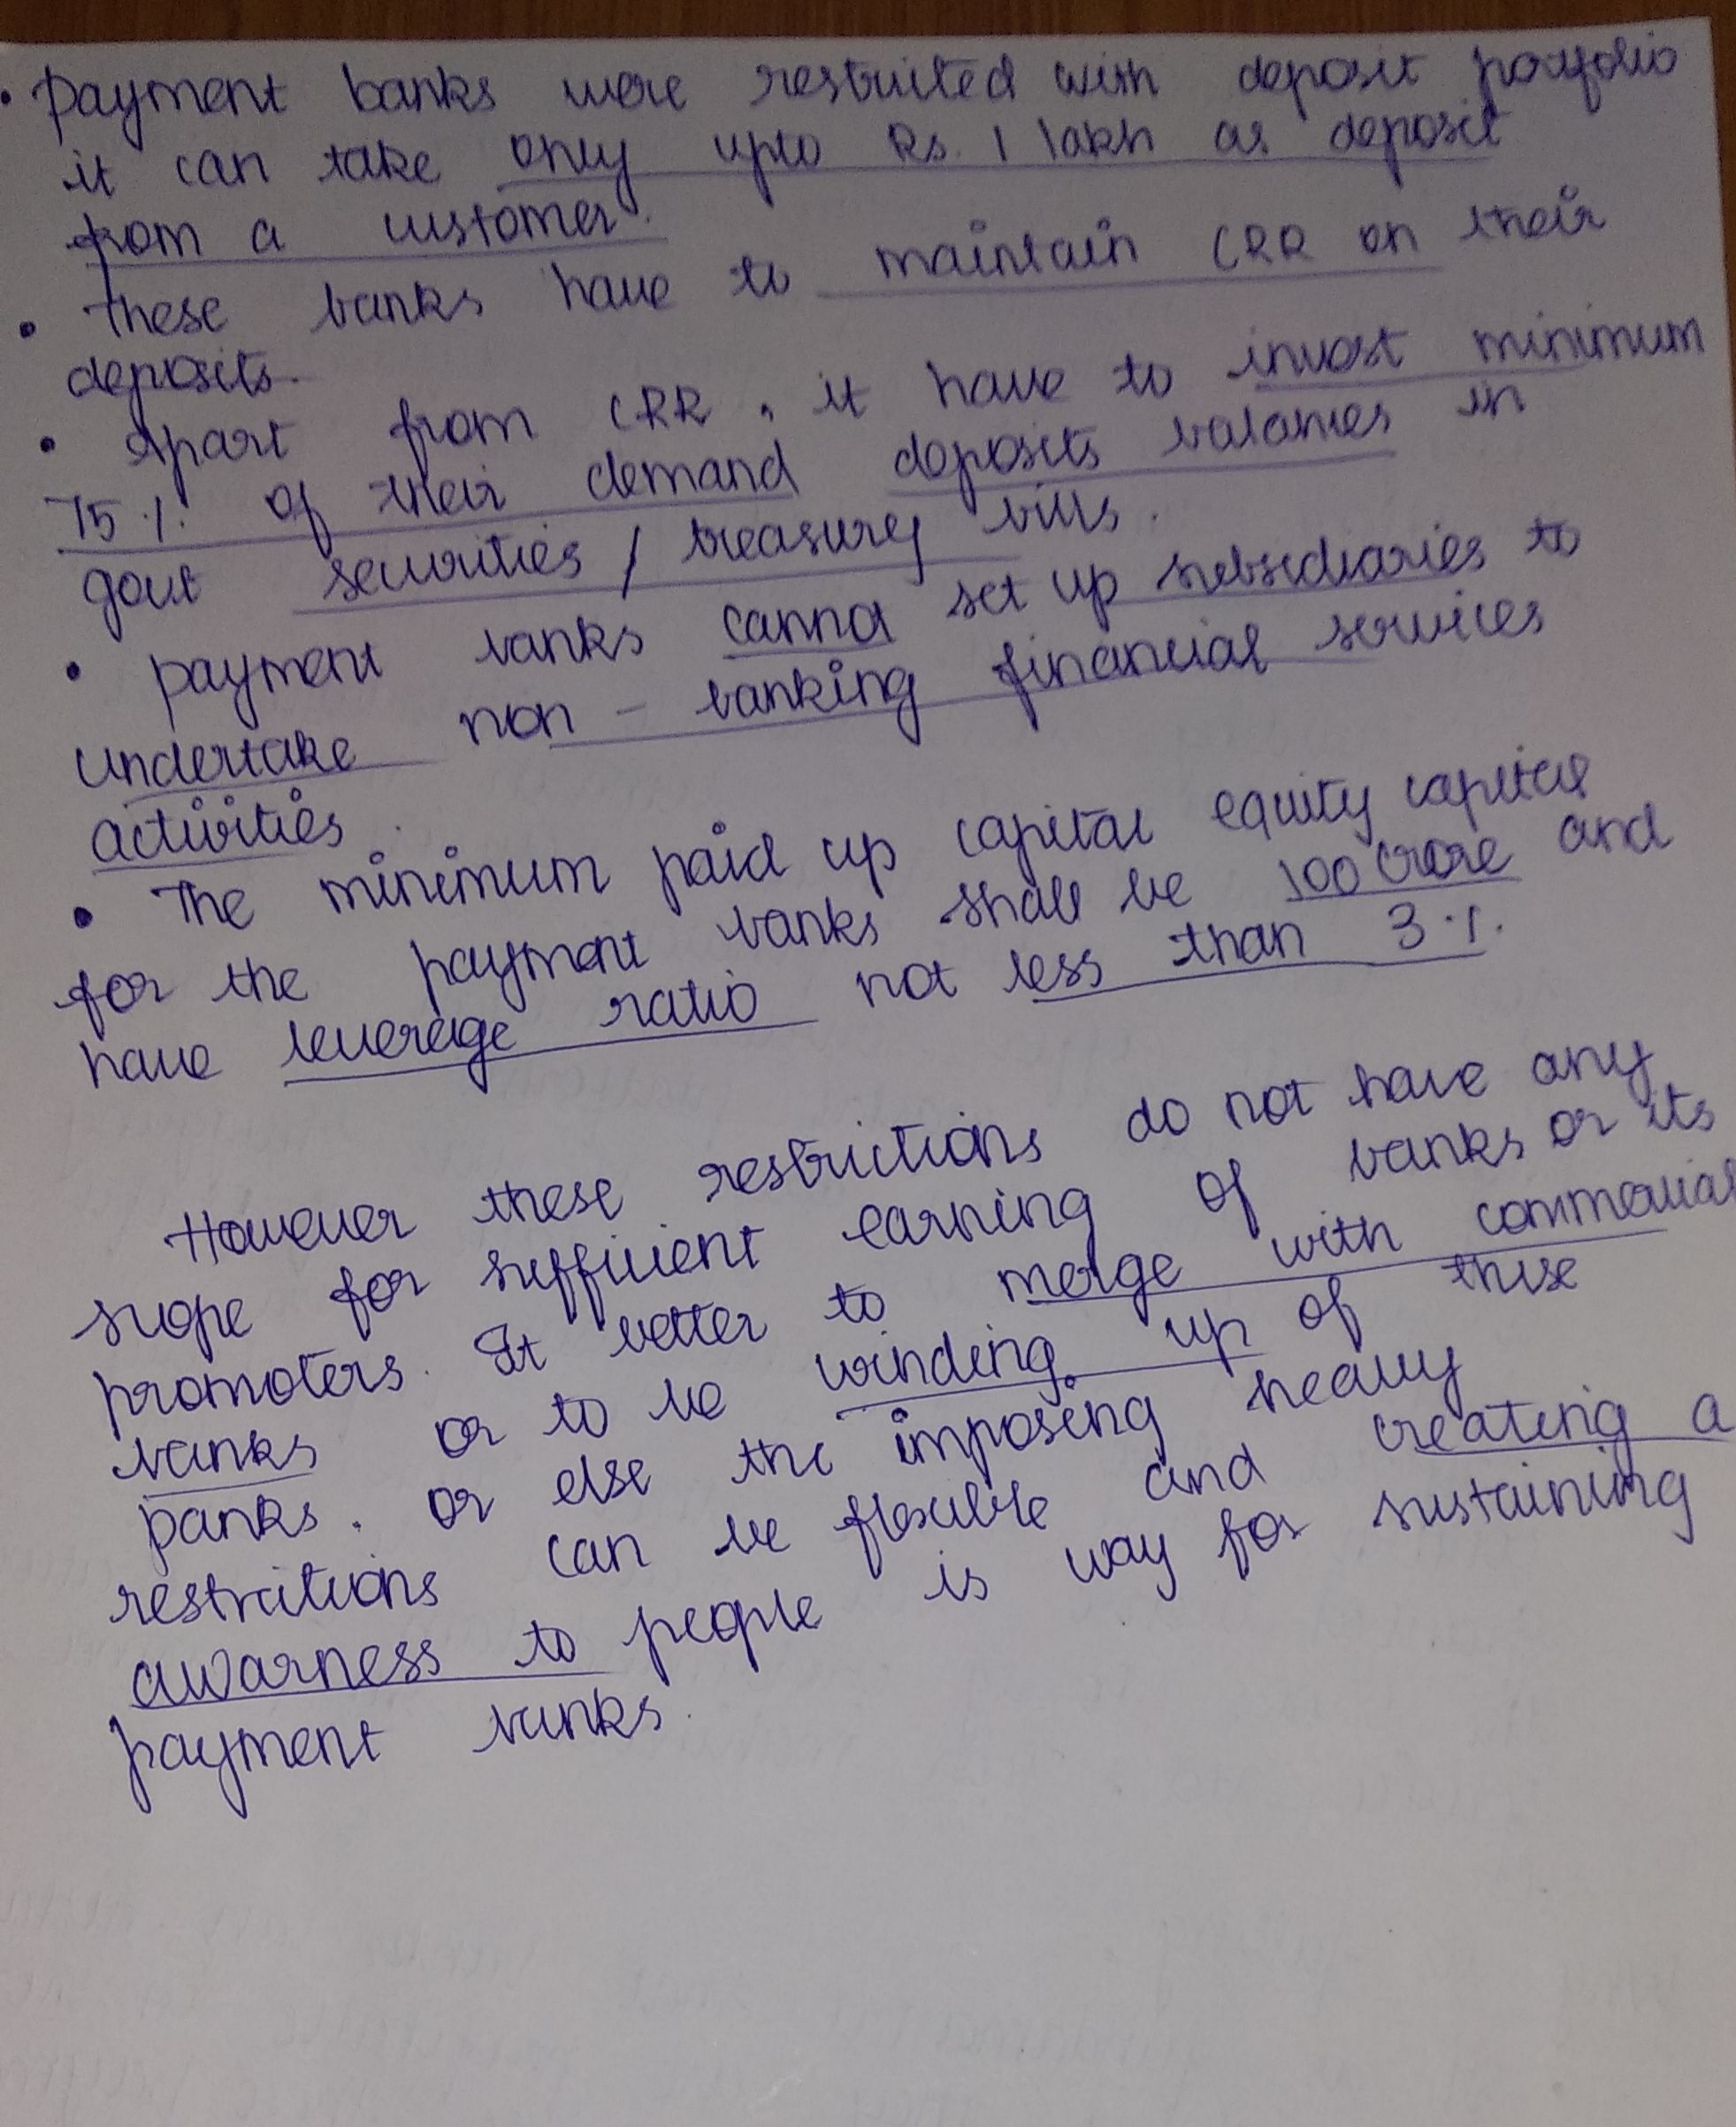 • Payment banks were restricted with deposit porfolio
it can take only upto Rs. 1 lakh as deposit
from a customer.
• These banks have to maintain CRR on their
deposits.
• Apart from CRR, it have to invest minimum
75% of their demand deposits balances in
govt securities / treasury bills.
• payment banks cannot set up subsidiaries to
undertake non - banking financial services
activities.
• The minimum paid up capital equity capital
for the payment banks shall be 100 crore and
have leverage ratio not less than 3%.
However these restrictions do not have any
scope for sufficient earning of banks or its
promoters. It better to merge with commercial
banks or to be winding up of these
panks. or else the imposing heavy
restrcitions can be flexible and creating a
awarness to people is way for sustaining
payment banks.